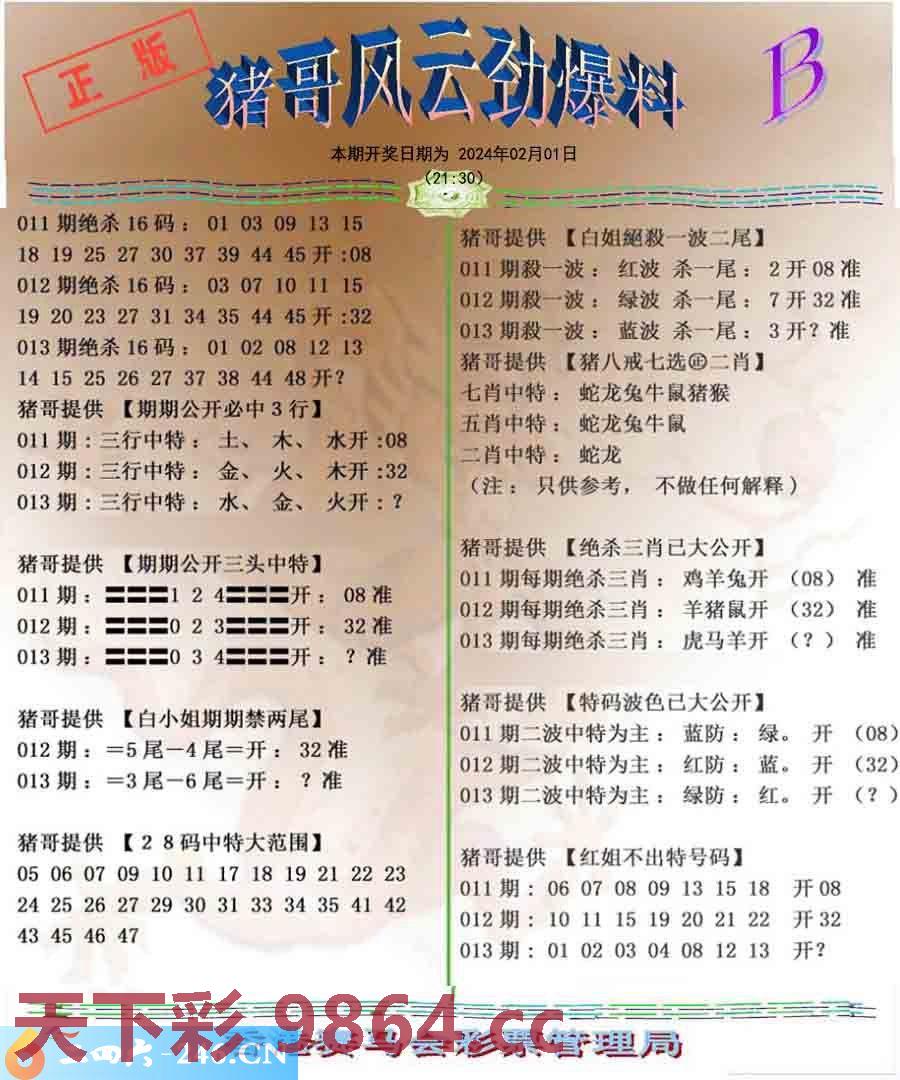 正版
猪哥风云劲爆料
B
本期开奖日期为 2024年02月01日
(21:30)
011期绝杀16码：01 03 09 13 15
18 19 25 27 30 37 39 44 45开:08
012期绝杀16码：03 07 10 11 15
19 20 23 27 31 34 35 44 45开:32
013期绝杀16码：01 02 08 12 13
14 15 25 26 27 37 38 44 48开?
猪哥提供 【期期公开必中3行】
011期:三行中特：土、 木、 水开:08
012期:三行中特：金、 火、 木开:32
013期:三行中特：水、 金、 火开:？
猪哥提供 【期期公开三头中特】
011期:〓〓〓1 2 4〓〓〓开：08准
012期:〓〓〓0 2 3〓〓〓开：32准
013期:〓〓〓0 3 4〓〓〓开：？准
猪哥提供 【白小姐期期禁两尾】
012期:＝5尾－4尾＝开：32准
013期:＝3尾－6尾＝开：？准
猪哥提供 【２８码中特大范围】
05 06 07 09 10 11 17 18 19 21 22 23
24 25 26 27 29 30 31 33 34 35 41 42
43 45 46 47
猪哥提供 【白姐絕殺一波二尾】
011期殺一波：红波 杀一尾：2开08准
012期殺一波：绿波 杀一尾：7开32准
013期殺一波：蓝波 杀一尾：3开？准
猪哥提供 【猪八戒七选㊣二肖】
七肖中特：蛇龙兔牛鼠猪猴
五肖中特：蛇龙兔牛鼠
二肖中特：蛇龙
（注：只供参考， 不做任何解释)
猪哥提供 【绝杀三肖已大公开】
011期每期绝杀三肖：鸡羊兔开 （08） 准
012期每期绝杀三肖：羊猪鼠开 （32） 准
013期每期绝杀三肖：虎马羊开 （？） 准
猪哥提供 【特码波色已大公开】
011期二波中特为主：蓝防：绿。 开 （08）
012期二波中特为主：红防：蓝。 开 （32）
013期二波中特为主：绿防：红。 开 （？）
猪哥提供 【红姐不出特号码】
011期: 06 07 08 09 13 15 18 开08
012期: 10 11 15 19 20 21 22 开32
013期: 01 02 03 04 08 12 13 开?
天下彩 9864.cc
二四六-246.CN
赛马会彩票管理局